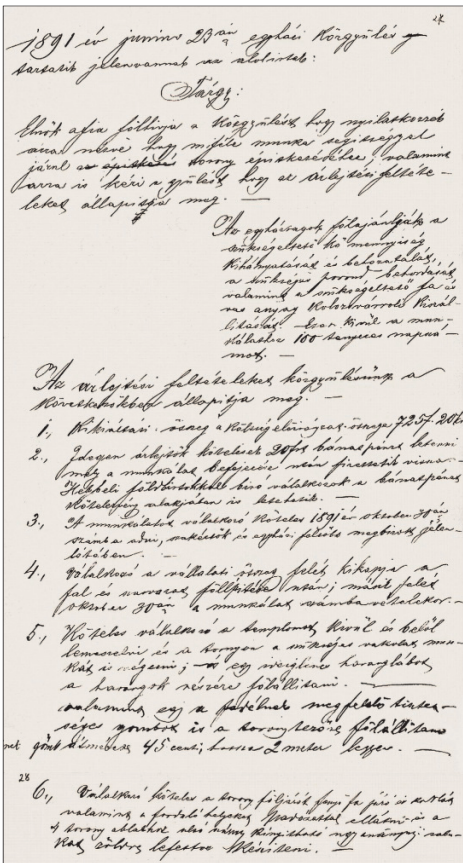 27
1891 év junius 23án egyházi Közgyülés
tartatik jelenvannak az alolirtak:
Tárgy:
Elnök afia fölhivja a közgyülést hogy nyilatkozzék
arra nézve hogy miféle munka segitséggel
járul torony épitkezéséhez, valamint
arra is kéri a gyülést hogy az árlejtési feltéte-
leket állapitsa meg. —
Az egyháztagok fölajánlják a
szükségeltető kő mennyiség
kihányatását és behozatalát,
a szükséges porond behordását
valamint a szükségeltető fa és
vas anyag Kolozsvárról kiszál-
litását. Ezen kivül a mun-
kálathoz 100 tenyeres napszá-
mot. —
Az árlejtési feltételeket közgyülésünk a
következőkben állapitja meg. —
1., Kikiáltási összeg a költség előirányzat összege 7257.20
2., Idegen árlejtők kötelesek 20 bánatpénzt letenni
mely a munkálat befejezése után fizettetik vissza.
Helybeli földbirtokkal biró vállalkozók a bánatpénzt
kötelezvény alakjában is letehetik. —
3., A munkálatot vállalkozó köteles 1891 év oktober 30án
számba adni, szakértők és egyházi felsőbb megbizott jelen-
létében. —
4., Vállalkozó a vállalati összeg felét kikapja a
fal és fölépitése után; másik felét
oktober 30án a munkálat számba vételekor. —
5., Köteles vállalkozó a templomot kivül és belől
bemeszelni és a tornyon a szükséges vakolat mun-
kát is végezni; egy haranglábot
a harangok részére fölállitani. —
valamint egy a fedélnek megfelő tisztes-
séges gombot is a torony tezőre fölállitani
gömb átmérője 45 centi, hossza 2 meter legyen. —
28
6., Vállalkozó köteles a torony följárását fenyő fa járó és korlát
valamint a forduló helyeket ellátni és a
4 torony ablakra alsó nyitható
zöldre lefestve késziteni. —